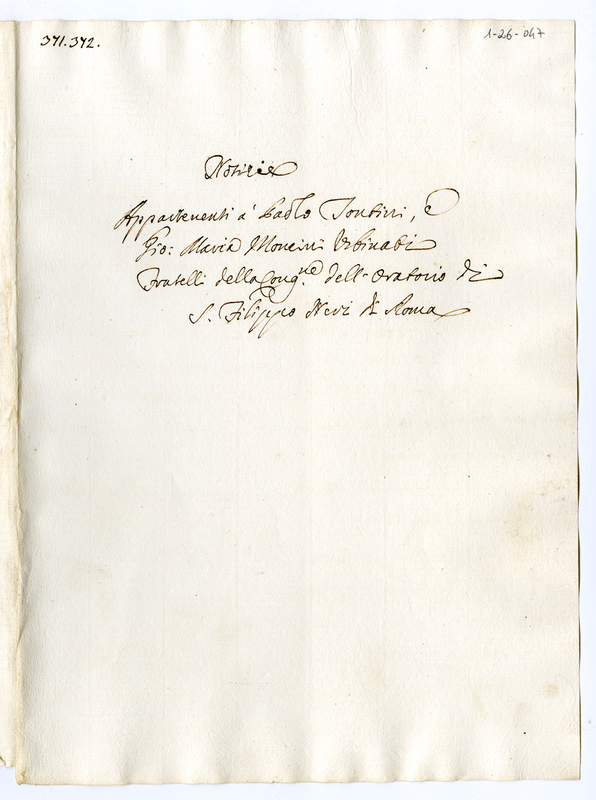 371.372.
1-26-047
Notizie
Appartenenti à Paolo, è
Gio: Maria Urbinati
Fratelli della Congne. dell' Oratorio di
S. Filippo Neri di Roma